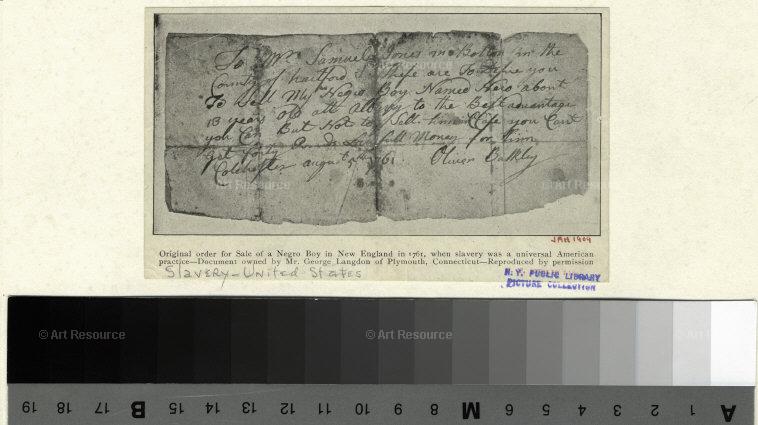 To Mr Samuel Jones in Bolton in the
County of hartford these are To desire you
To Sell My Negro Boy Named Nero about
13 years old att all to the Best advantage
you Can But Not to Sell him in Case you Cant
get forty Pounds Lawfull Money for him
Colchester august 1761 Oliver Bulkley
JAN 1909
Original order for Sale of a Negro Boy in New England in 1761, when slavery was a universal American
practice—Document owned by Mr. George Langdon of Plymouth, Connecticut—Reproduced by permission
Slavery - United States
N. Y. PUBLIC LIBRARY
PICTURE COLLECTION
© Art Resource
© Art Resource
© Art Resource
© Art Resource
© Art Resource
© Art Resource
19 18 17 B 16 15 14 13 12 11 10 9 8 M 7 6 5 4 3 2 1 A